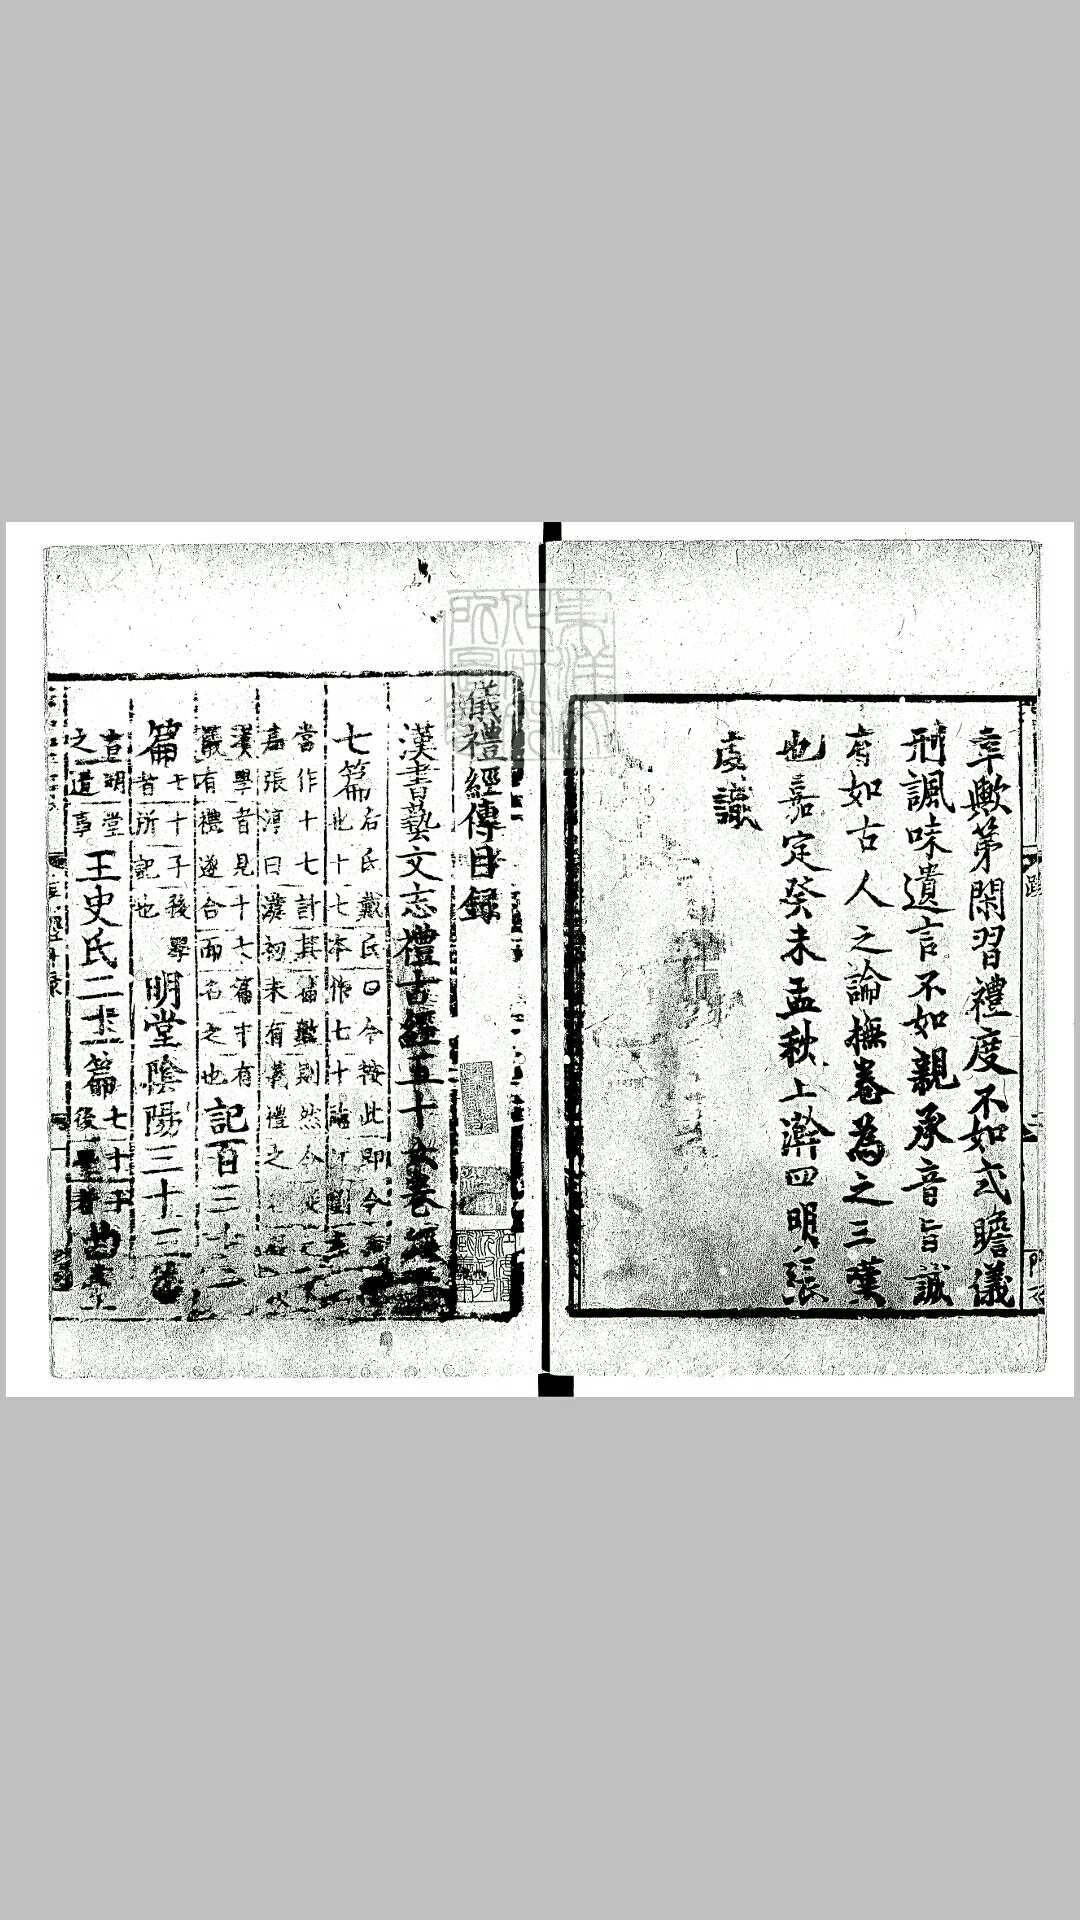 幸歟第閑習禮度不如式瞻儀
刑諷味遺言不如親承音旨誠
有如古人之論撫卷為之三嘆
也嘉定癸未孟秋上澣四明張
虙識
儀禮經傳目録
漢書藝文志禮古經五十六卷經
七篇
后氏戴氏曰今按此即今
也十七本作七十
當作十七計其篇數則然今
嘉張淳曰漢初未有儀禮之
漢學者見十七篇中有
儀有禮遂合而名之也
記百三十一
篇
七十子後學
者所記也
明堂陰陽三十三篇
古明堂
之遺事
王史氏二十一篇
七十子
後學者
曲臺